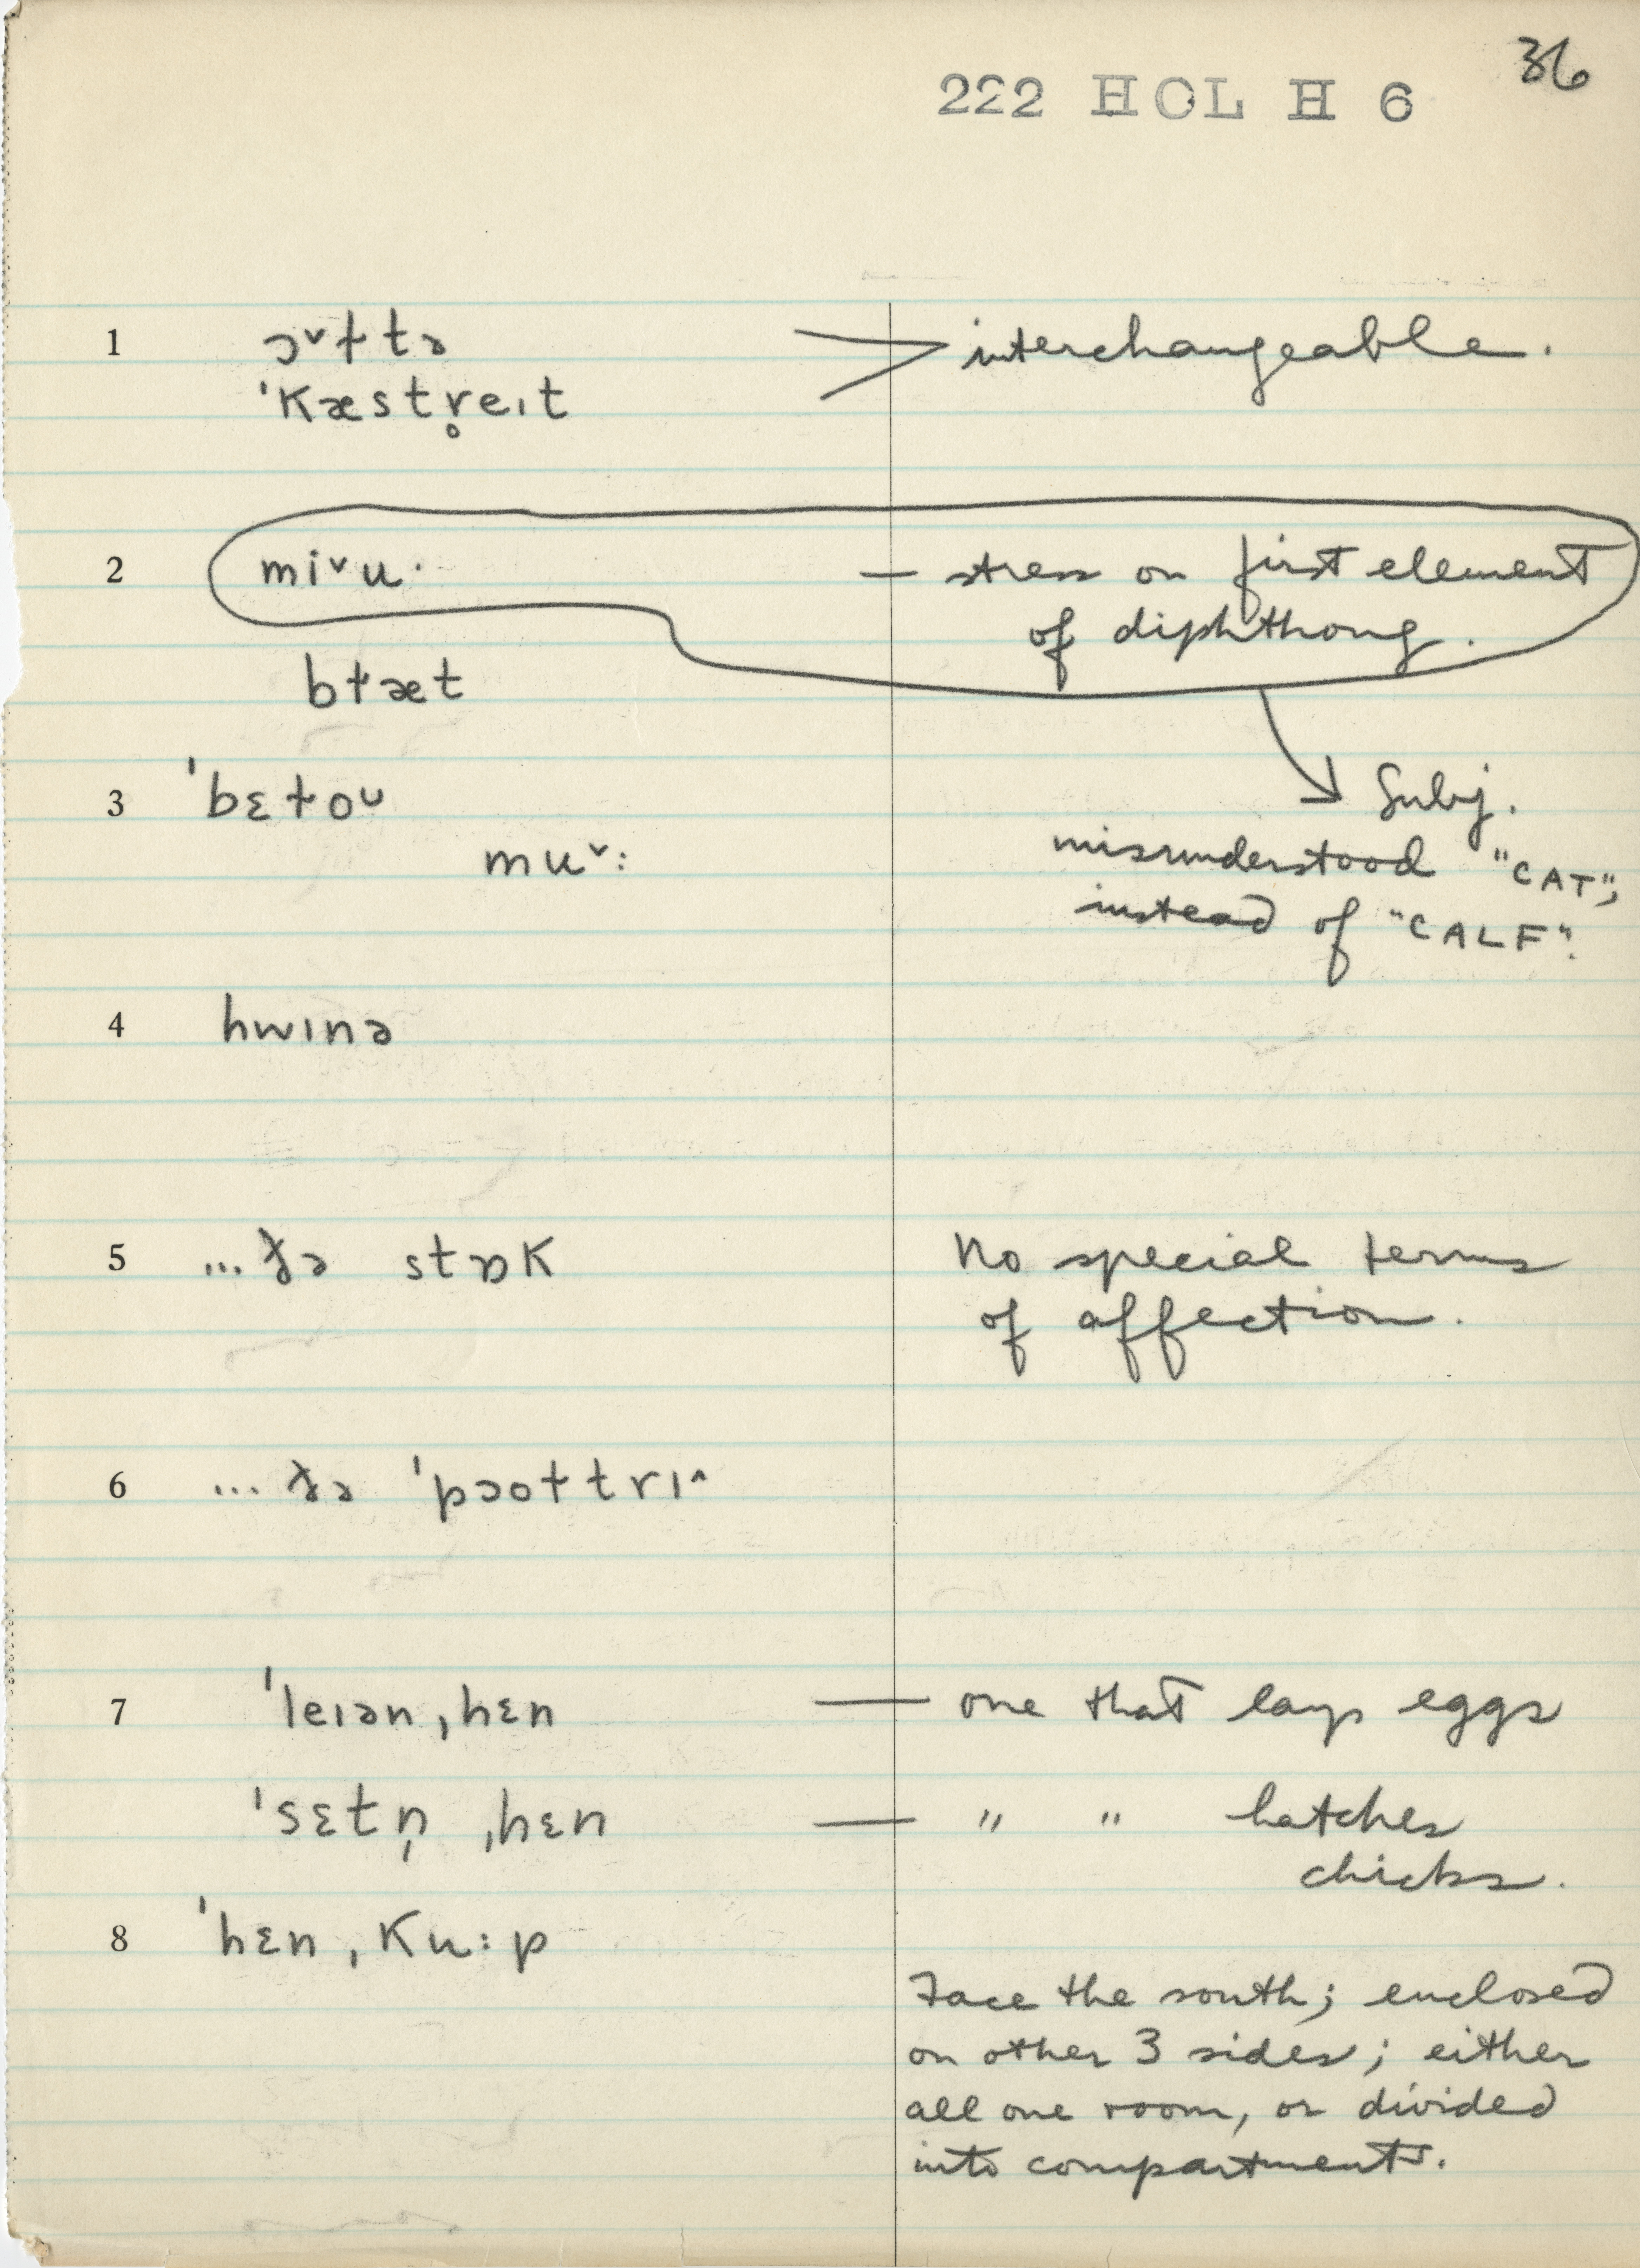 36
222 HOL H 6
1 ɔˇɫtə > interchangeable.
ˈkæstr̥eɪt
2 miˇu· — stress on first element
of diphthong.
bɫæt
3 ˈbɛɫoᴜ → Subj.
muˇ: misunderstood "CAT",
instead of "CALF".
4 hwɪnə
5 ...ðə stɒk No special terms
of affection.
6 ... ðə ˈpɔoɫtrɪ^
7 ˈleɪən ˌhɛn — one that lays eggs
ˈsɛtn̩ ˌhɛn — " " hatches
chicks.
8 ˈhɛn ˌku:p
Face the south; enclosed
on other 3 sides; either
all one room, or divided
into compartments.